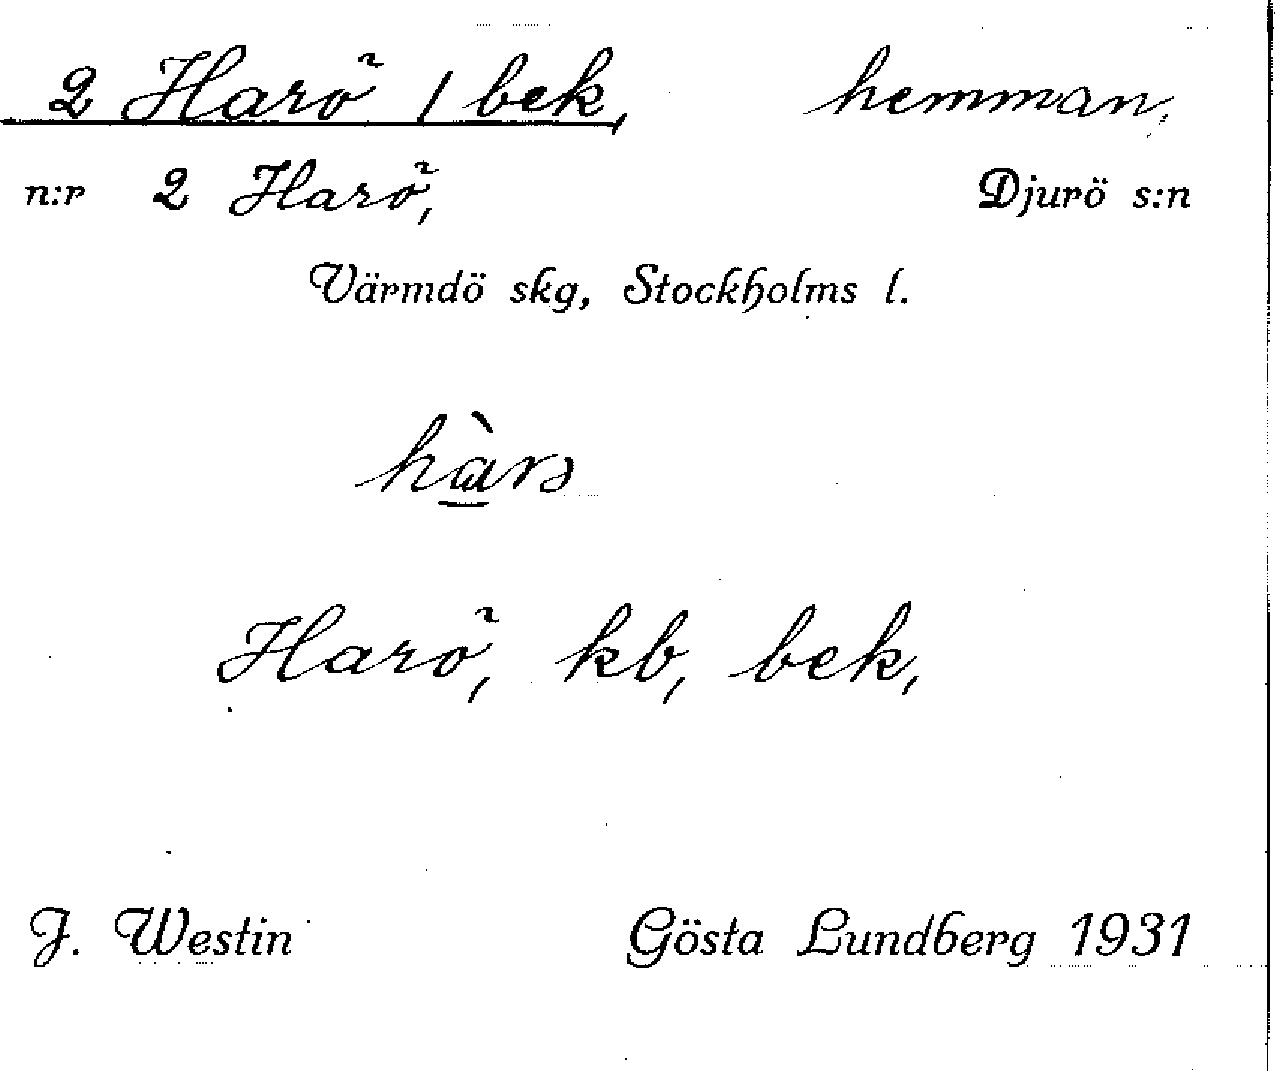 2 Harö / bek, hemman,
n:r 2 Harö, Djurö s:n
Värmdö skg, Stockholms l.
hàrs
Harö, kb, bek,
J. Westin Gösta Lundberg 1931